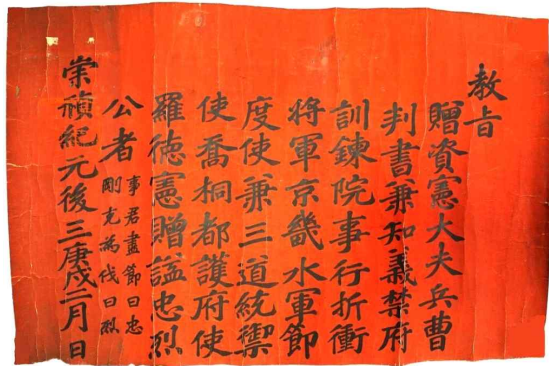 教旨
贈資憲大夫兵曹
判書兼知義禁府
訓鍊院事行折衝
將軍京畿水軍節
度使兼三道統禦
使喬桐都護府使
羅德憲贈謚忠烈
公者
事君盡節曰忠
剛克爲伐曰烈
崇禎紀元後三庚戌二月 日